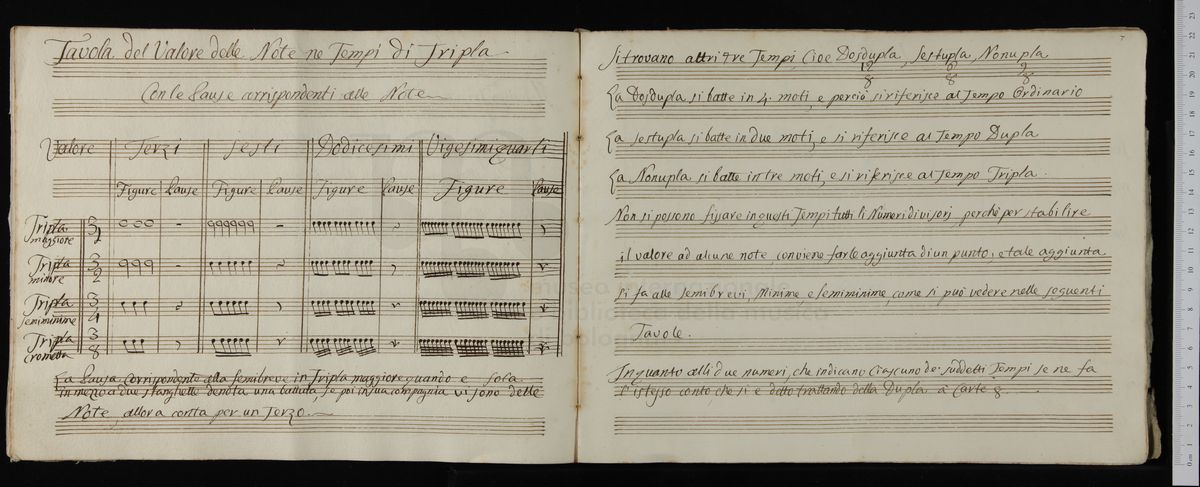 Tavola del Valore delle Note ne Tempi di Tripla
Con le Pause corrispondenti alle Note
Valore Terzi Sesti Dodicesimi Vigesimiquarti
Figure Pause Figure Pause Figure Pause Figure Pause
Tripla maggiore 3/1
Tripla minore 3/2
Tripla semiminime 3/4
Tripla crometta 3/8
La Pausa corrispondente alla semibreve in Tripla maggiore quando e sola
in mezzo a due stanghette denota una battuta, se poi in sua compagnia vi sono delle
Note, allora conta per un Terzo.
7
Si trovano altri tre Tempi, Cioe Dosdupla, Sestupla, Nonupla
12/8 6/8 9/8
La Dosdupla si batte in 4. moti, e perciò si riferisce al Tempo Ordinario
La Sestupla si batte in due moti, e si riferisce al Tempo Dupla
La Nonupla si batte in tre moti, e si riferisce al Tempo Tripla.
Non si possono fissare in questi Tempi tutti li Numeri divisori perchè per stabilire
il valore ad alcune note, conviene farle aggiunta di un punto, e tale aggiunta
si fa alle semibrevi, Minime e semiminime, come si può vedere nelle seguenti
Tavole.
In quanto alli due numeri, che indicano ciascuno de' suddotti Tempi se ne fa
l'istesso conto, che si e detto trattando della Dupla à Carte 8.
museo internazionale
e biblioteca della musica
di bologna